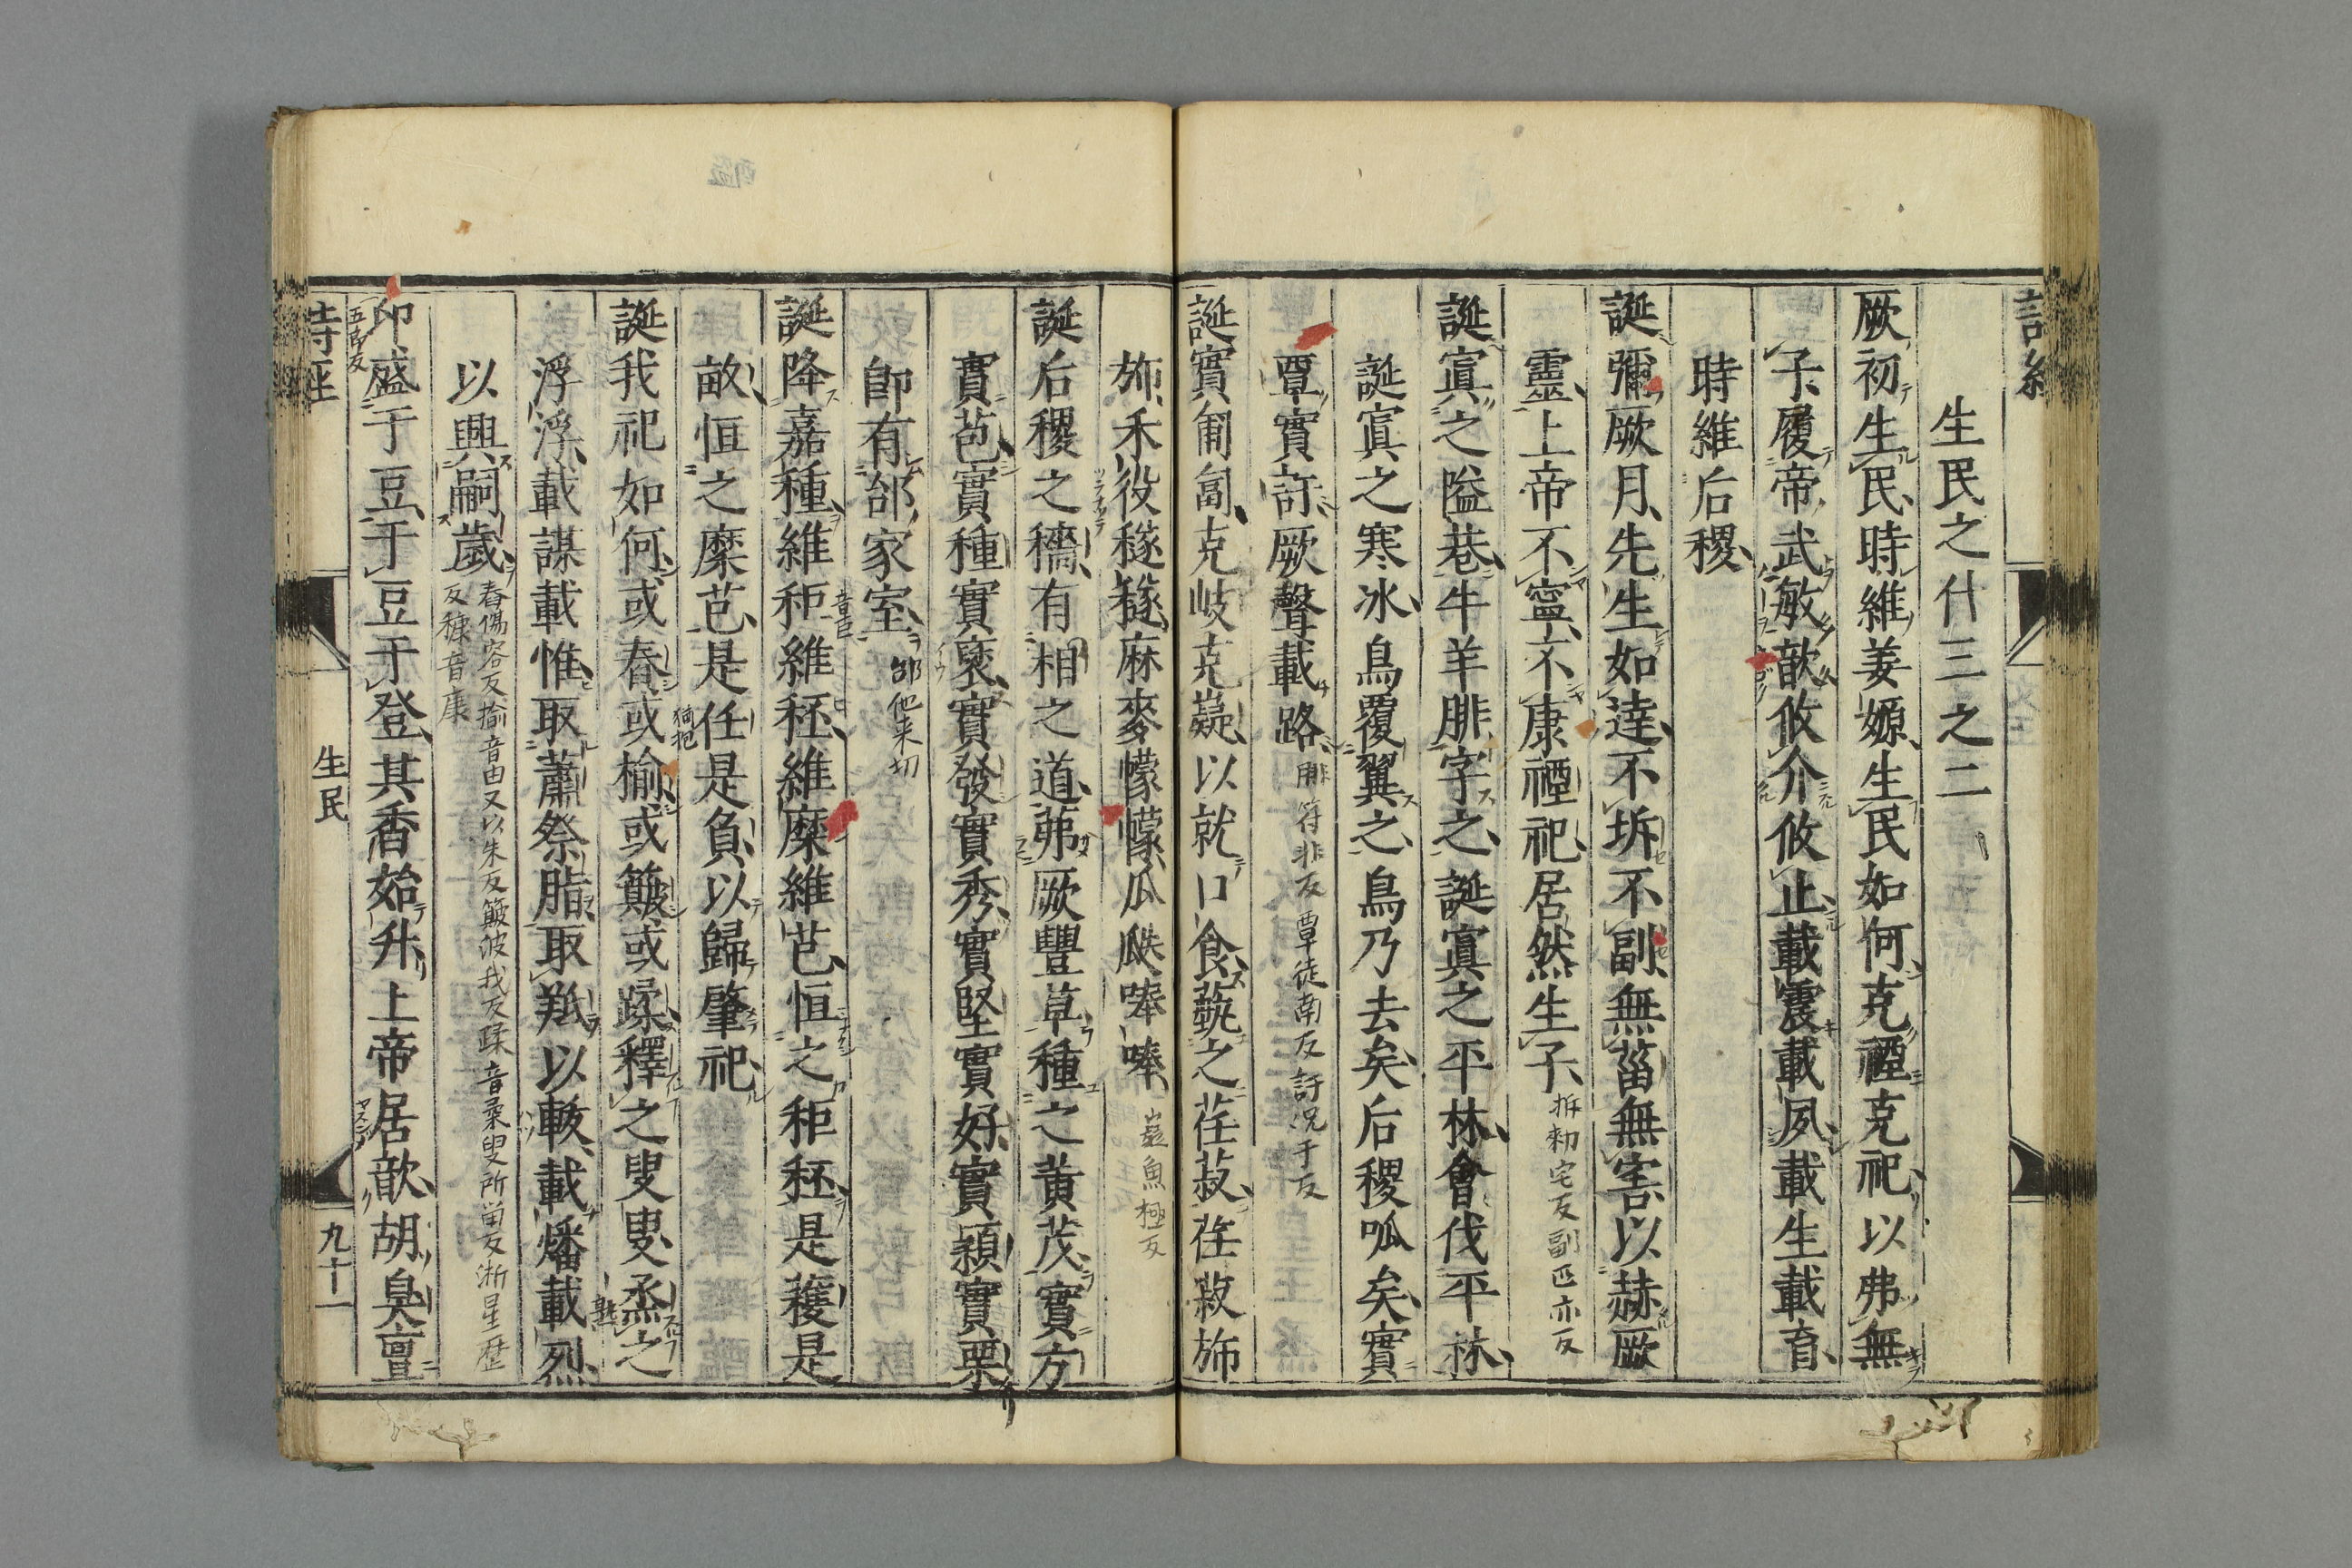 詩經
生民之什三之二
厥初生民時維姜嫄生民如何克禋克祀以弗無
子履帝武敏歆攸介攸止載震載夙載生載育
時維后稷
誕彌厥月先生如達不坼不副無菑無害以赫厥
靈上帝不寧不康禋祀居然生子 拆勑宅反副匹亦反
誕寘之隘巷牛羊腓字之誕寘之平林會伐平林
誕寘之寒冰鳥覆翼之鳥乃去矣后稷呱矣實
覃實訏厥聲載路 腓符非反覃徒南反訏況于反
誕實匍匐克岐克嶷以就口食蓺之荏菽荏菽斾
斾禾役穟穟麻麥幪幪瓜瓞唪唪 嶷魚極反
誕后稷之穡有相之道茀厥豐草種之黄茂實方
實苞實種實褎實發實秀實堅實好實穎實栗
卽有邰家室 邰他来切
誕降嘉種維秬維秠維穈維芑恒之秬秠是穫是
畝恒之穈芑是任是負以歸肇祀
誕我祀如何或舂或揄或簸或蹂釋之叟叟烝之
浮浮載謀載惟取蕭祭脂取羝以軷載燔載烈
以興嗣歲 舂傷容反揄音由又以朱反簸波我反蹂音柔叟所留反淅星歴
反糠音康
卬盛于豆于豆于登其香始升上帝居歆胡臭亶
五郎反
音巨
生民
九十一